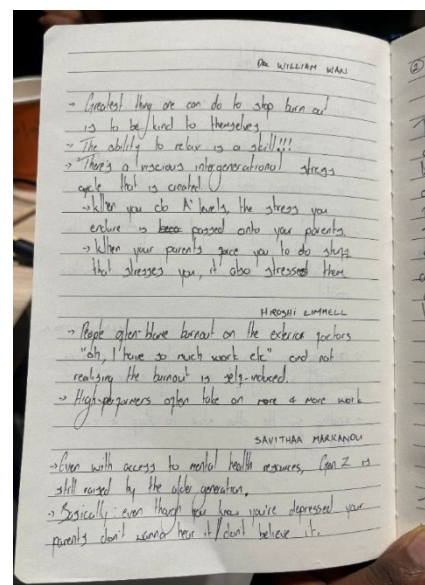 DR WILLIAM WAN
→ Greatest thing one can do to stop burn out
is to be kind to themselves
→ The ability to relax is a skill!!!
→ There's a viscious intergenerational stress
cycle that is created.
→ When you do A' levels, the stress you
endure is passed onto your parents
→ When your parents force you to do stuff
that stresses you, it also stressed them
HIROSHI LIMMELL
→ People often blame burnout on the exterior factors
"oh, I have so much work etc" and not
realising the burnout is self-induced.
→ High-performers often take on more & more work
SAVITHAA MARKANDU
→ Even with access to mental health resources, Gen Z is
still raised by the older generation.
→ Basically: even though you know you're depressed your
parents don't wanna hear it/don't believe it.
②